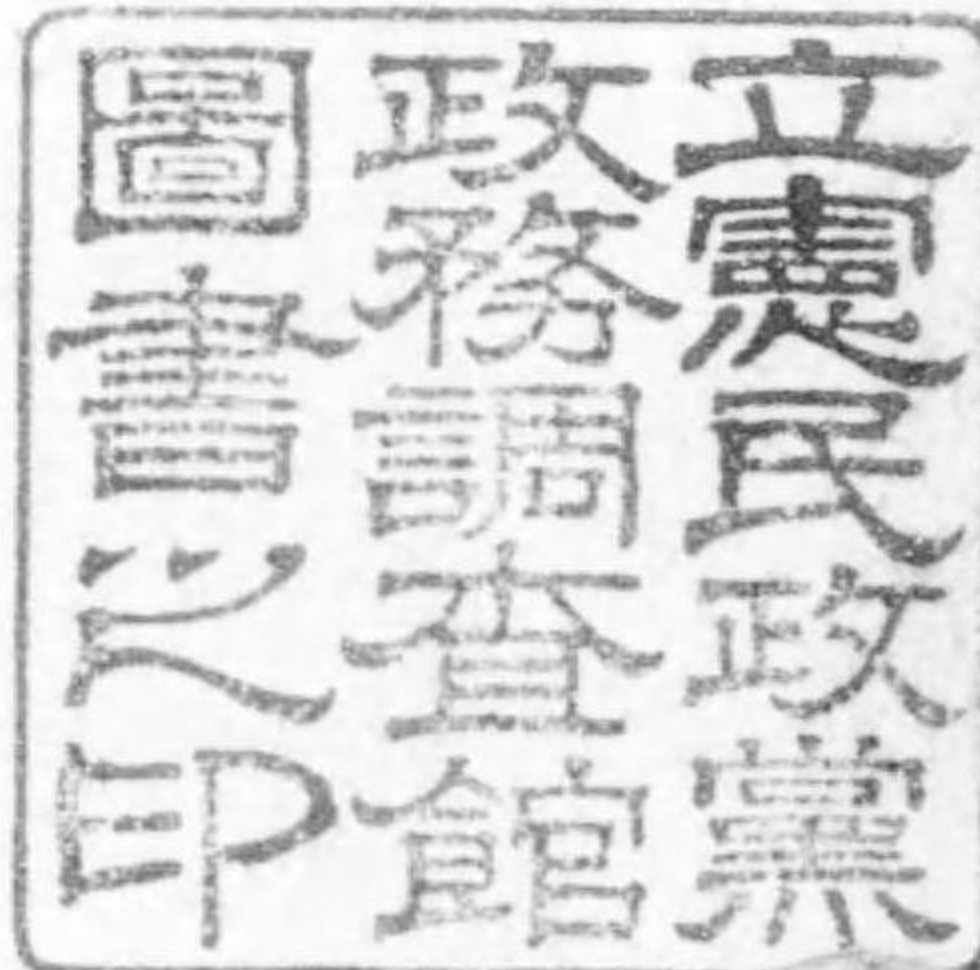 立憲民政黨
政務調査館
圖書之印